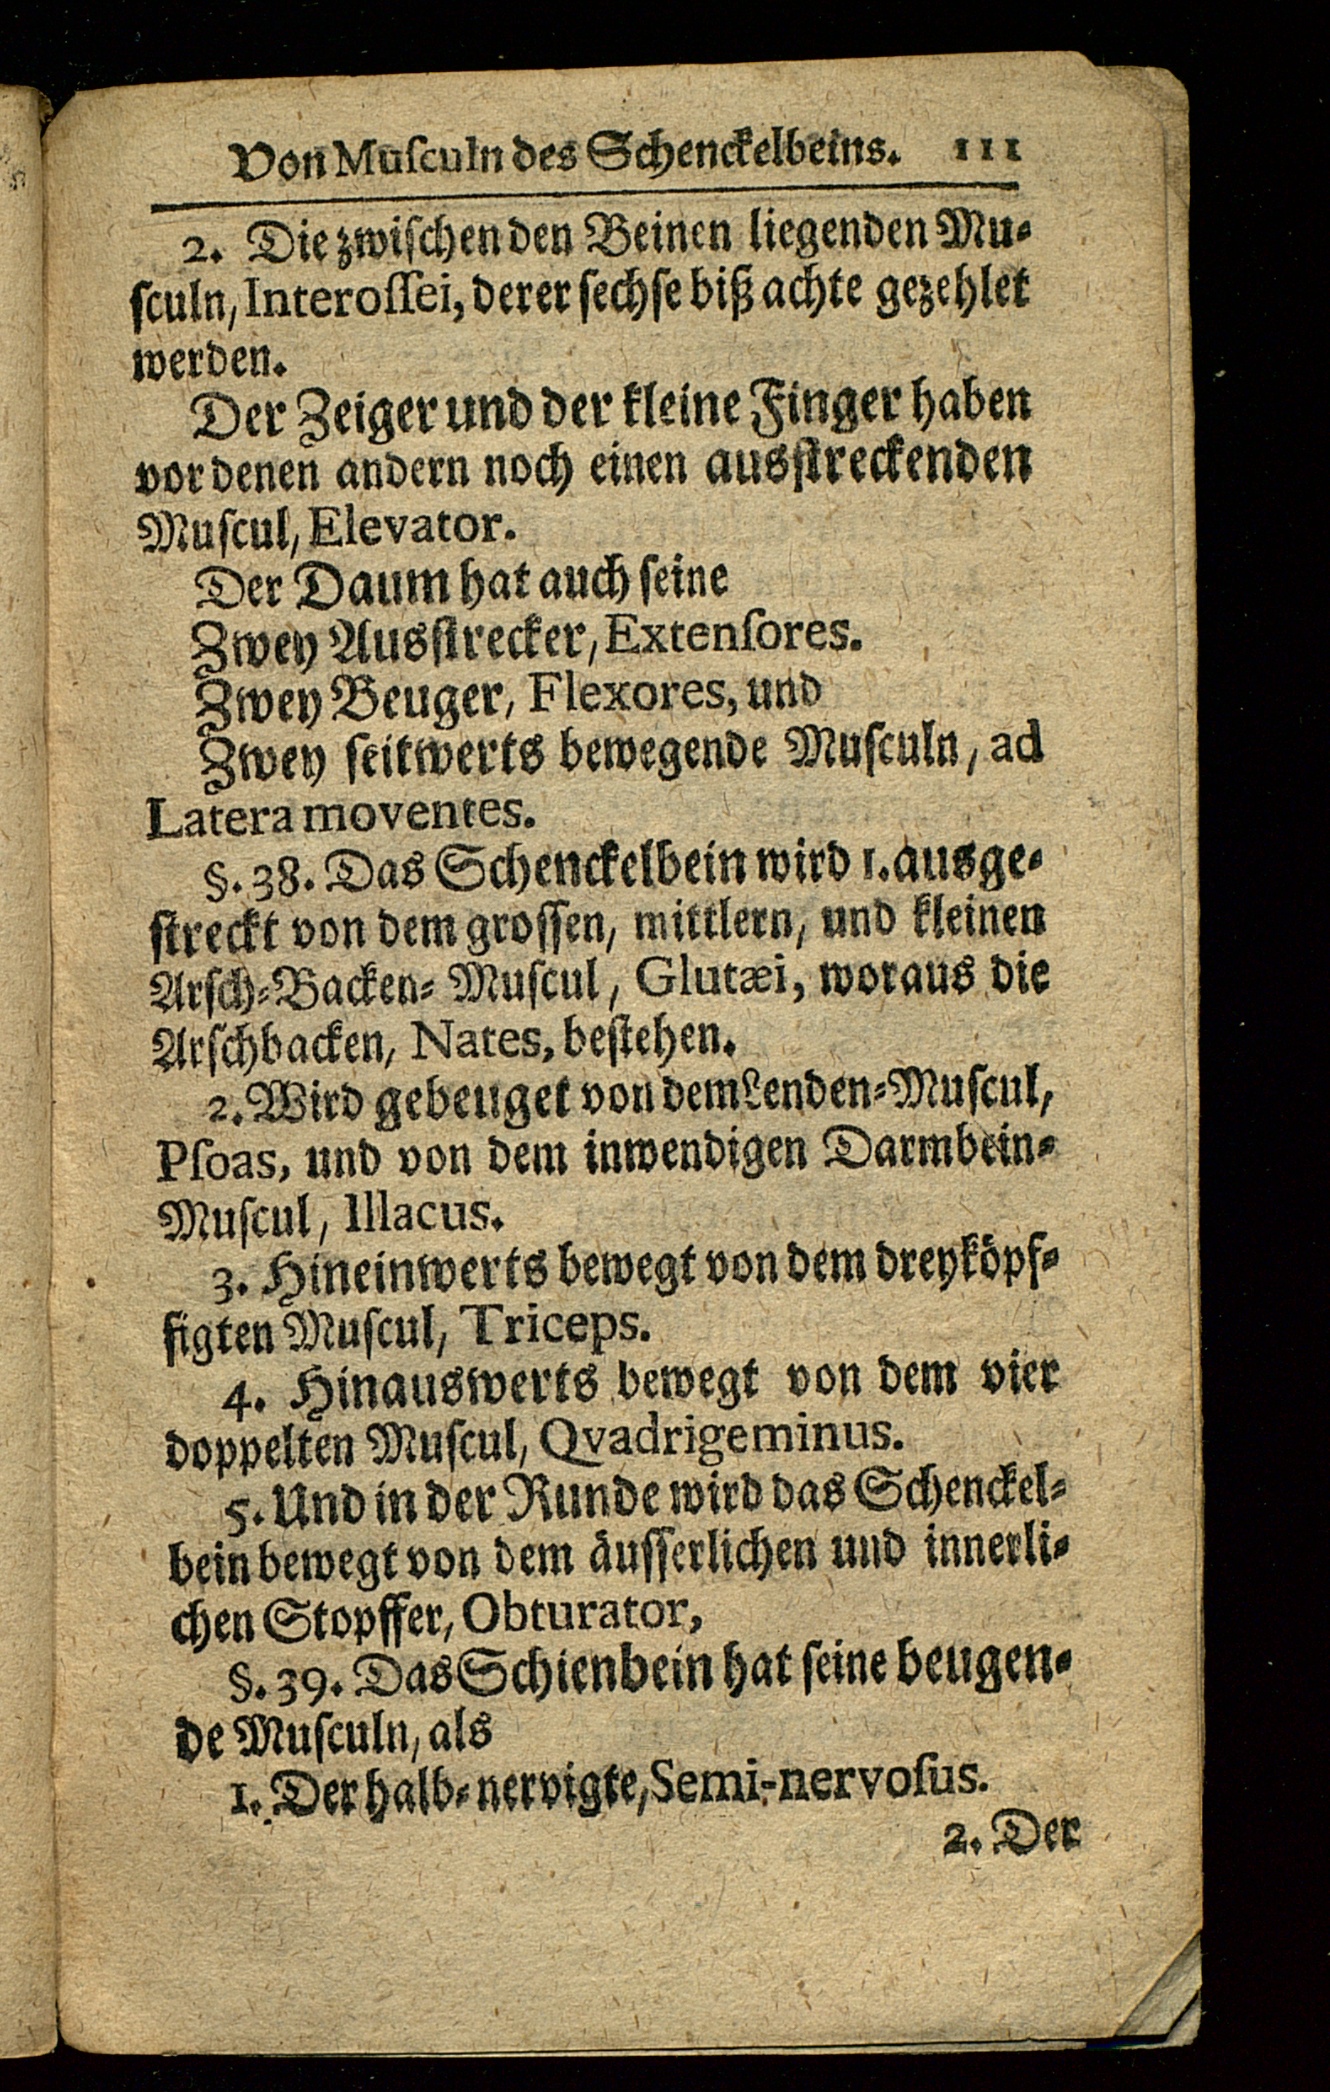 Von Muſculn des Schenckelbeins. 111
2. Die zwiſchen den Beinen liegenden Mu-
ſculn, Interoſſei, derer ſechſe biß achte gezehlet
werden.
Der Zeiger und der kleine Finger haben
vor denen andern noch einen ausſtreckenden
Muſcul, Elevator.
Der Daum hat auch ſeine
Zwey Ausſtrecker, Extenſores.
Zwey Beuger, Flexores, und
Zwey ſeitwerts bewegende Muſculn, ad
Latera moventes.
§. 38. Das Schenckelbein wird 1. ausge-
ſtreckt von dem groſſen, mittlern, und kleinen
Arſch-Backen-Muſcul, Glutæi, woraus die
Arſchbacken, Nates, beſtehen.
2. Wird gebeuget von dem Lenden-Muſcul,
Pſoas, und von dem inwendigen Darmbein-
Muſcul, Illacus.
3. Hineinwerts bewegt von dem dreyköpf-
figten Muſcul, Triceps.
4. Hinauswerts bewegt von dem vier
doppelten Muſcul, Qvadrigeminus.
5. Und in der Runde wird das Schenckel-
bein bewegt von dem äuſſerlichen und innerli-
chen Stopffer, Obturator,
§. 39. Das Schienbein hat ſeine beugen-
de Muſculn, als
1. Der halb-nervigte, Semi-nervoſus.
2. Der